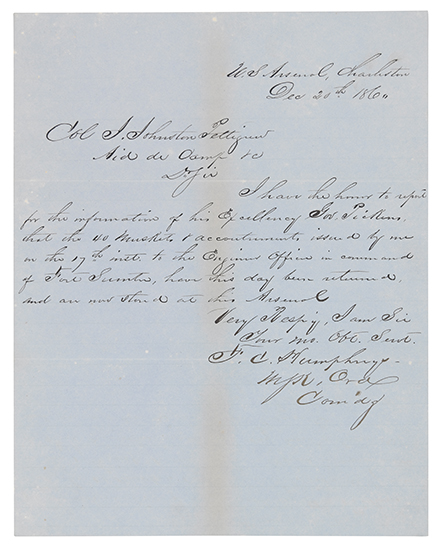 U.S Arsenal, Charleston
Dec 20th 1860
Col J. Johnston Pettigrew
Aid de Camp &c
Dr Sir
I have the honor to report
for the information of his Excellency Gov. Pickens,
that the 40 Muskets & accoutrements issued by me
on the 17th inst. to the Engineer Officer in command
of Fort Sumter, have this day been returned,
and are now stored at this Arsenal
Very Respy, I am Sir
Your mo. Obt. Servt.
F. C. Humphreys
M.S.K., Ord
Com'dg